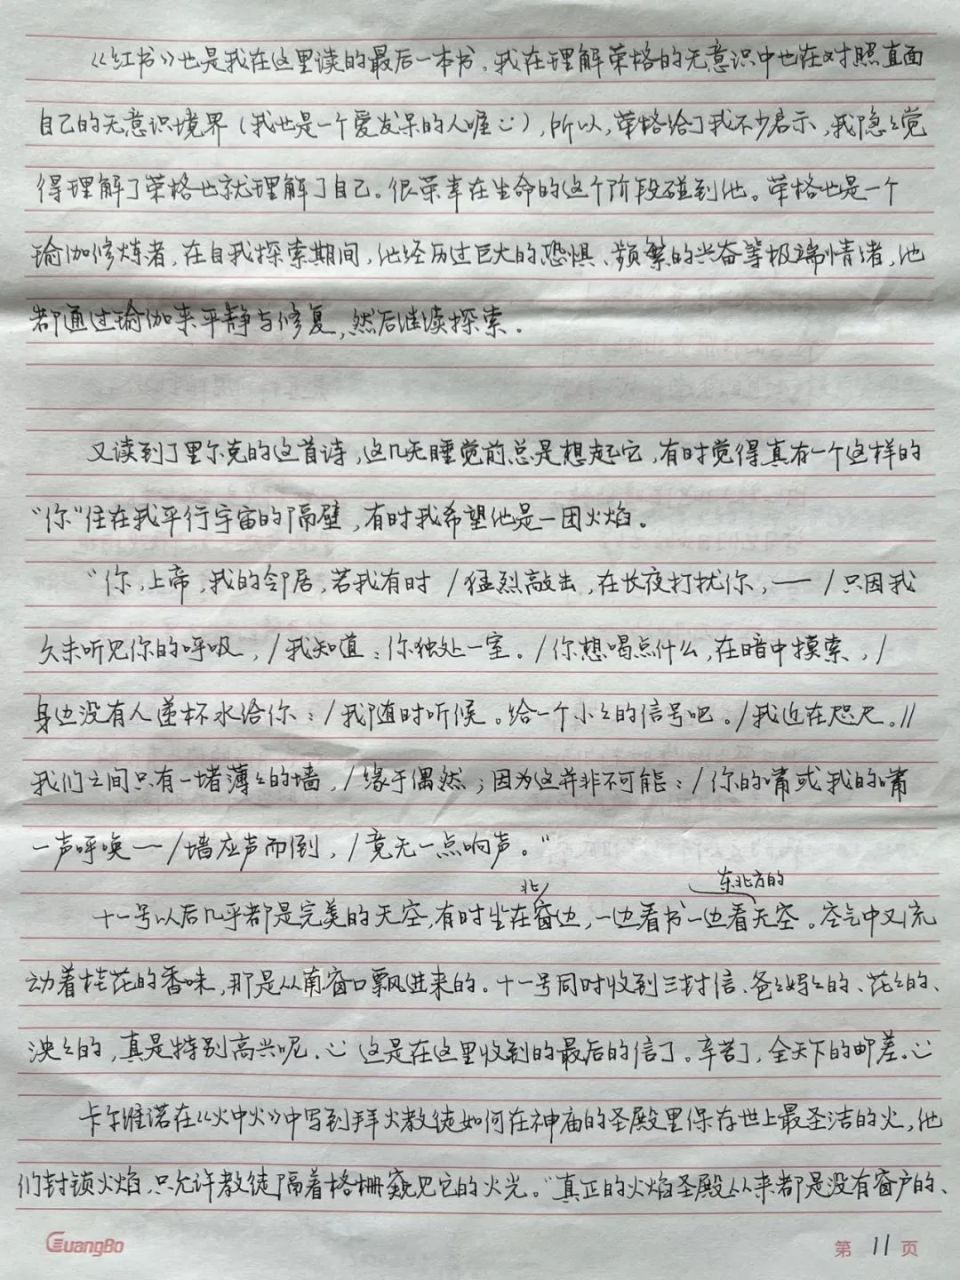 《红书》也是我在这里读的最后一本书。我在理解荣格的无意识中也在对照直面
自己的无意识境界（我也是一个爱发呆的人喔:)），所以，荣格给了我不少启示，我隐々觉
得理解了荣格也就理解了自己。很荣幸在生命的这个阶段碰到他。荣格也是一个
瑜伽修炼者，在自我探索期间，他经历过巨大的恐惧、频繁的兴奋等极端情绪，他
都通过瑜伽来平静与修复，然后继续探索。
又读到了里尔克的这首诗，这几天睡觉前总是想起它，有时觉得真有一个这样的
“你”住在我平行宇宙的隔壁，有时我希望他是一团火焰。
“你，上帝，我的邻居，若我有时/猛烈敲击，在长夜打扰你，——/只因我
久未听见你的呼吸，/我知道：你独处一室。/你想喝点什么，在暗中摸索，/
身边没有人递杯水给你：/我随时听候。给一个小々的信号吧。/我近在咫尺。//
我们之间只有一堵薄々的墙，/缘于偶然；因为这并非不可能：/你的嘴或我的嘴
一声呼唤——/墙应声而倒，/竟无一点响声。”
北 东北方的
十一号以后几乎都是完美的天空，有时坐在窗边，一边看书一边看天空。空气中又流
动着桂花的香味，那是从南窗口飘进来的。十一号同时收到三封信、爸々妈々的、花々的、
泱々的，真是特别高兴呢。:) 这是在这里收到的最后的信了。辛苦了，全天下的邮差。:)
卡尔维诺在《火中火》中写到拜火教徒如何在神庙的圣殿里保存世上最圣洁的火，他
们封锁火焰，只允许教徒隔着格栅窥见它的火光。“真正的火焰圣殿从来都是没有窗户的、
GuangBo
第 11 页